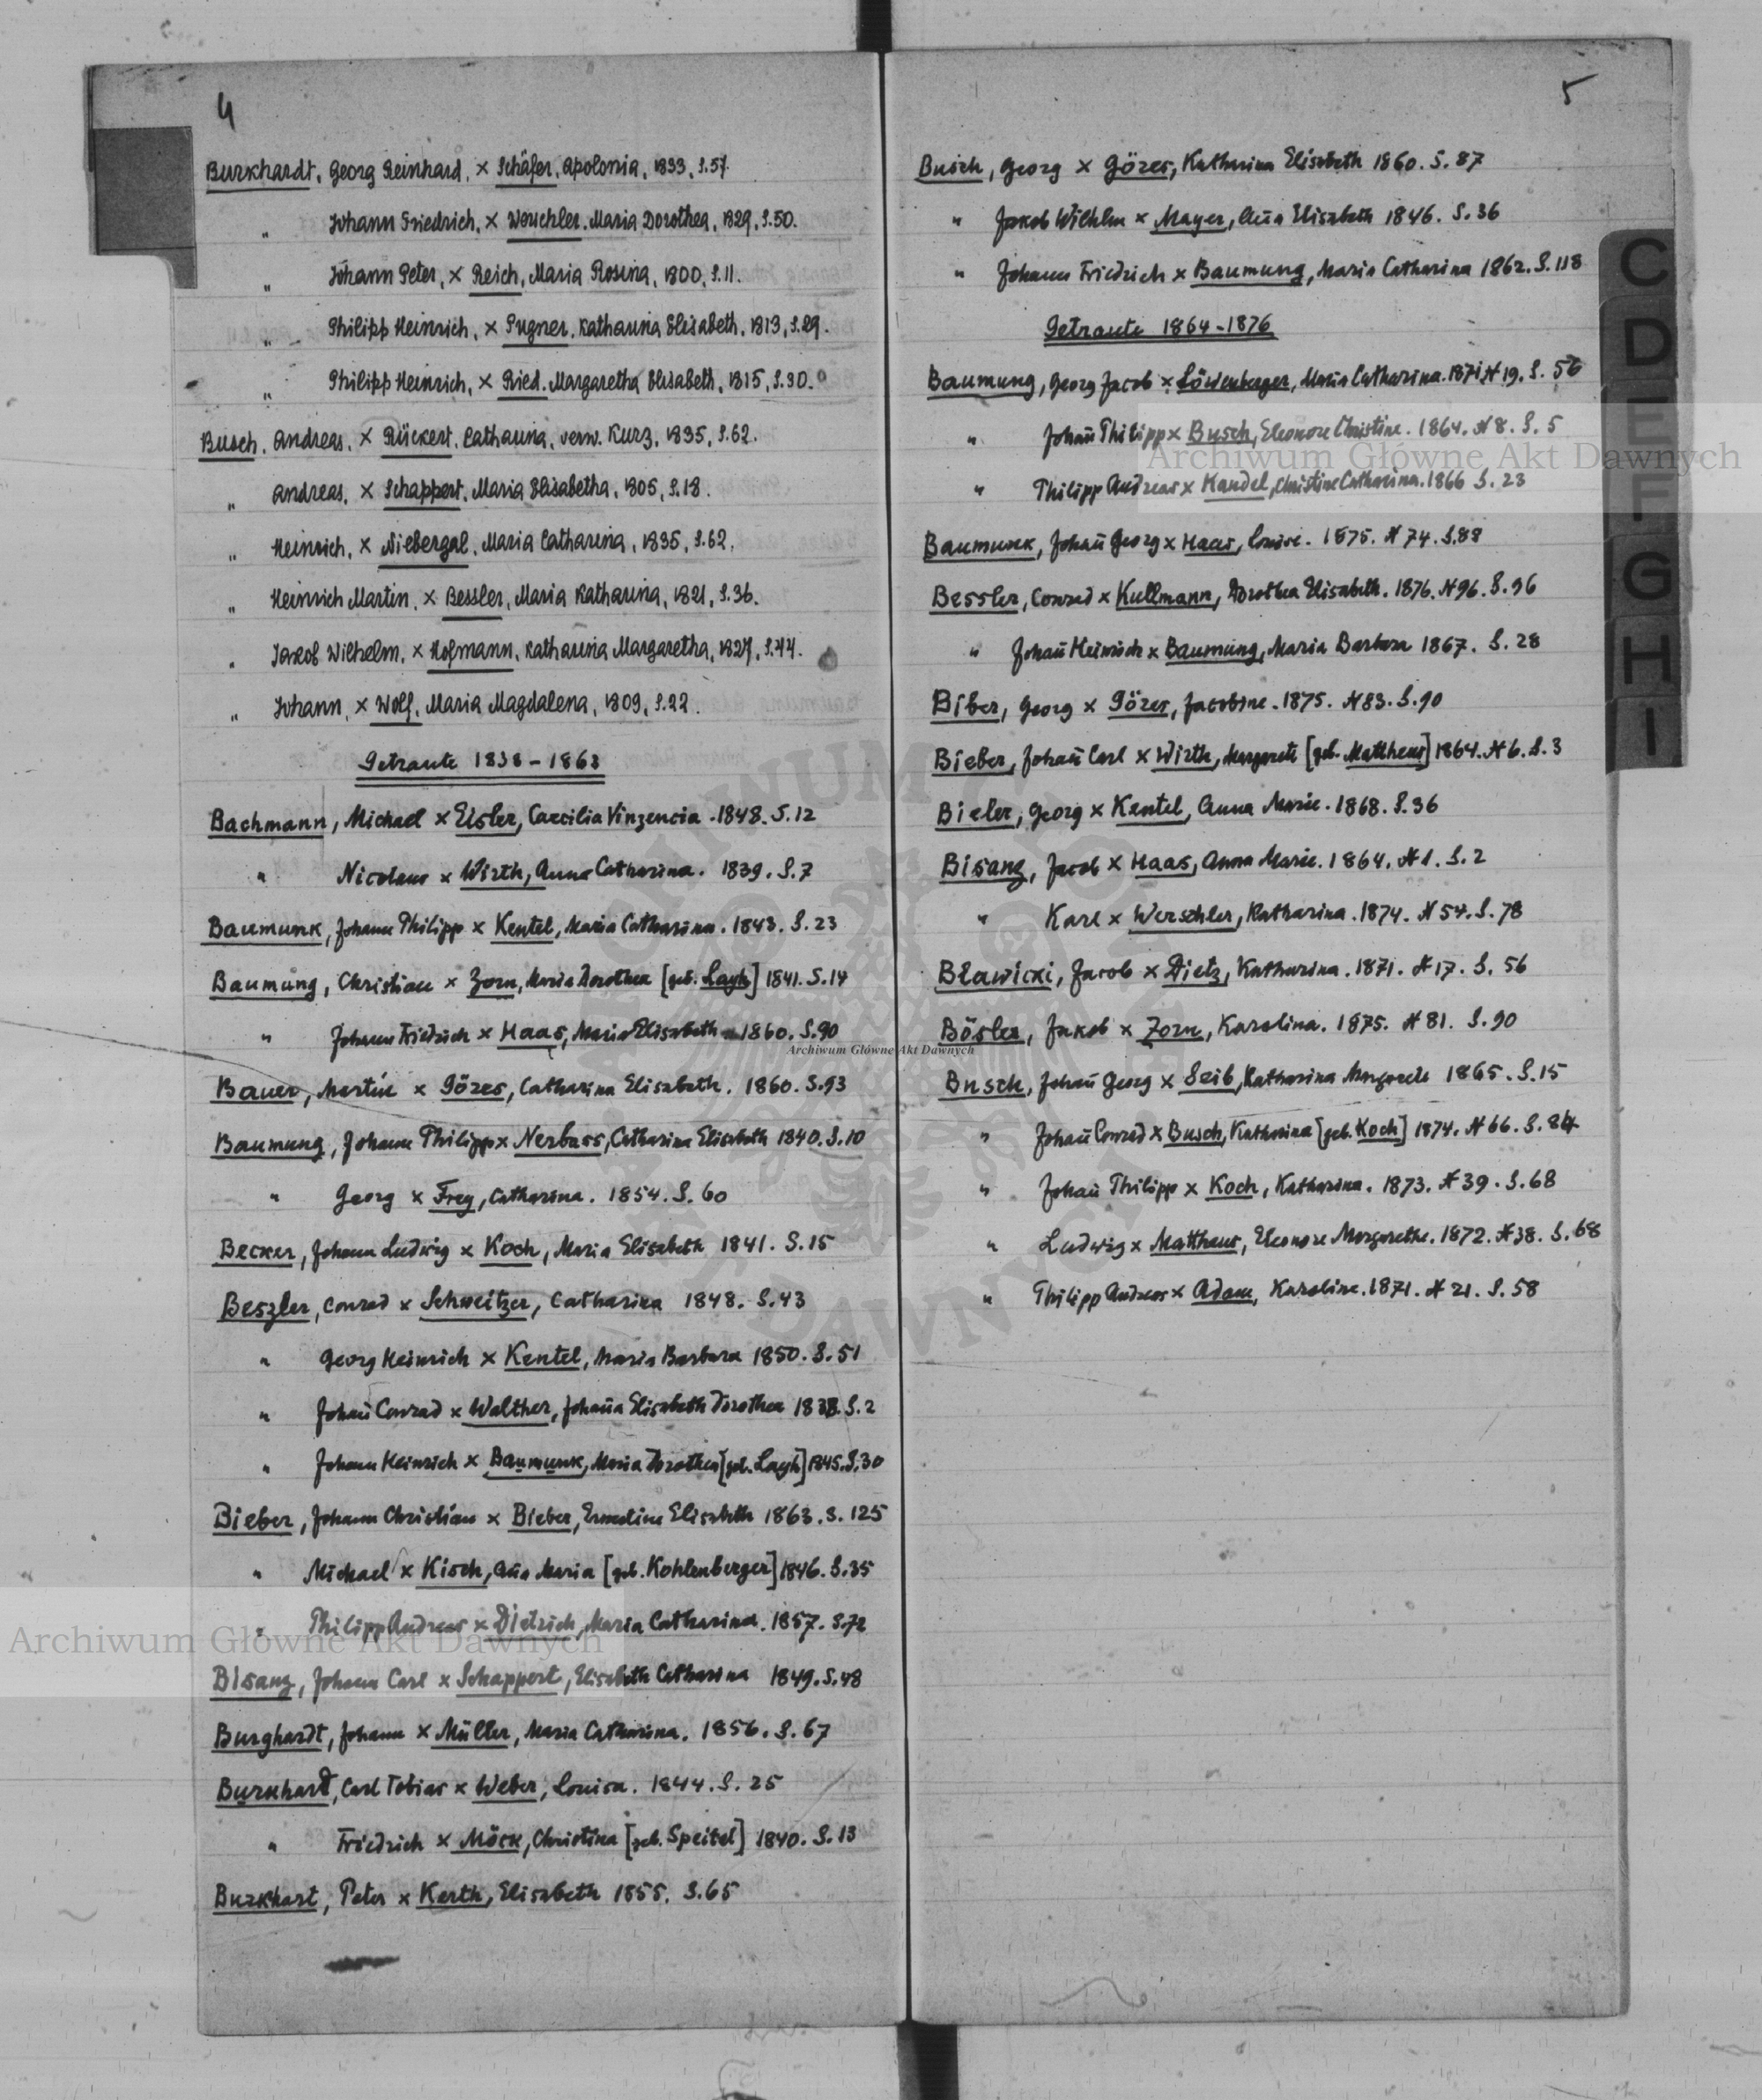 4
Burkhardt, Georg Reinhard, × Schäfer, Apolonia, 1833, S.57.
" Johann Friedrich, × Werschler, Maria Dorothea, 1829, S.50.
" Johann Peter, × Reich, Maria Rosina, 1800, S.11.
" Philipp Heinrich, × Pugner, Katharina Elisabeth, 1813, S.29.
" Philipp Heinrich, × Ried, Margaretha Elisabeth, 1815, S.30.
Busch, Andreas, × Rückert, Catharina, verw. Kurz, 1835, S.62.
" Andreas, × Schappert, Maria Elisabetha, 1805, S.18.
" Heinrich, × Niebergal, Maria Catharina, 1835, S.62.
" Heinrich Martin, × Bessler, Maria Katharina, 1821, S.36.
" Jakob Wilhelm, × Hofmann, Katharina Margaretha, 1827, S.44.
" Johann, × Wolf, Maria Magdalena, 1809, S.22.
Getraute 1838 - 1863
Bachmann, Michael × Eisler, Caecilia Vinzencia. 1848. S.12
" Nicolaus × Wirth, Anna Catharina. 1839. S.7
Baumunk, Johann Philipp × Kentel, Maria Catharina. 1843. S.23
Baumung, Christian × Zorn, Maria Dorothea [geb. Layh] 1841. S.14
" Johann Friedrich × Haas, Maria Elisabeth 1860. S.90
Bauer, Martin × Gözes, Catharina Elisabeth. 1860. S.93
Baumung, Johann Philipp × Nerbass, Catharina Elisabeth 1840. S.10
" Georg × Frey, Catharina. 1854. S.60
Becker, Johann Ludwig × Koch, Maria Elisabeth 1841. S.15
Beszler, Conrad × Schweitzer, Catharina 1848. S.43
" Georg Heinrich × Kentel, Maria Barbara 1850. S.51
" Johañ Conrad × Walther, Johaña Elisabeth Dorothea 1838. S.2
" Johann Heinrich × Baumunk, Maria Dorothea [geb. Layh] 1845. S.30
Bieber, Johann Christian × Bieber, Ernestine Elisabeth 1863. S.125
" Michael × Kisch, Aña Maria [geb. Kohlenberger] 1846. S.35
" Philipp Andreas × Dietrich, Maria Catharina. 1857. S.72
Bisang, Johann Carl × Schappert, Elisabeth Catharina 1849. S.48
Burghardt, Johann × Müller, Maria Catharina. 1856. S.67
Burkhard, Carl Tobias × Weber, Louisa. 1844. S.25
" Friedrich × Möck, Christina [geb. Speitel] 1840. S.13
Burkhart, Peter × Kerth, Elisabeth 1855. S.65
5
Busch, Georg × Gözes, Katharina Elisabeth 1860. S.87
" Jakob Wilhelm × Mayer, Aña Elisabeth 1846. S.36
" Johann Friedrich × Baumung, Maria Catharina 1862. S.118
Getraute 1864-1876
Baumung, Georg Jacob × Löwenberger, Maria Catharina. 1871, N 19. S. 56
" Johañ Philipp × Busch, Eleonore Christine. 1864. N 8. S. 5
" Philipp Andreas × Kandel, Christine Catharina. 1866 S. 23
Baumunk, Johañ Georg × Haas, Louise. 1875. N 74. S.88
Bessler, Conrad × Kullmann, Dorothea Elisabeth. 1876. N 96. S.96
" Johañ Heinrich × Baumung, Maria Barbara 1867. S. 28
Biber, Georg × Gözes, Jacobine. 1875. N 83. S.90
Bieber, Johañ Carl × Wirth, Margarete [geb. Mattheus] 1864. N 6. S. 3
Bieler, Georg × Kentel, Anna Marie. 1868. S.36
Bisang, Jacob × Haas, Anna Marie. 1864. N 1. S. 2
" Karl × Werschler, Katharina. 1874. N 54. S. 78
Bławicki, Jacob × Dietz, Katharina. 1871. N 17. S. 56
Bösler, Jakob × Zorn, Karolina. 1875. N 81. S. 90
Busch, Johañ Georg × Seib, Katharina Margarete 1865. S.15
" Johañ Conrad × Busch, Katharina [geb. Koch] 1874. N 66. S. 84
" Johañ Philipp × Koch, Katharina. 1873. N 39. S.68
" Ludwig × Matthaus, Eleonore Margarethe. 1872. N 38. S. 68
" Philipp Andreas × Adam, Karoline. 1871. N 21. S. 58
C
D
E
F
G
H
I
Archiwum Główne Akt Dawnych
Archiwum Główne Akt Dawnych
Archiwum Główne Akt Dawnych